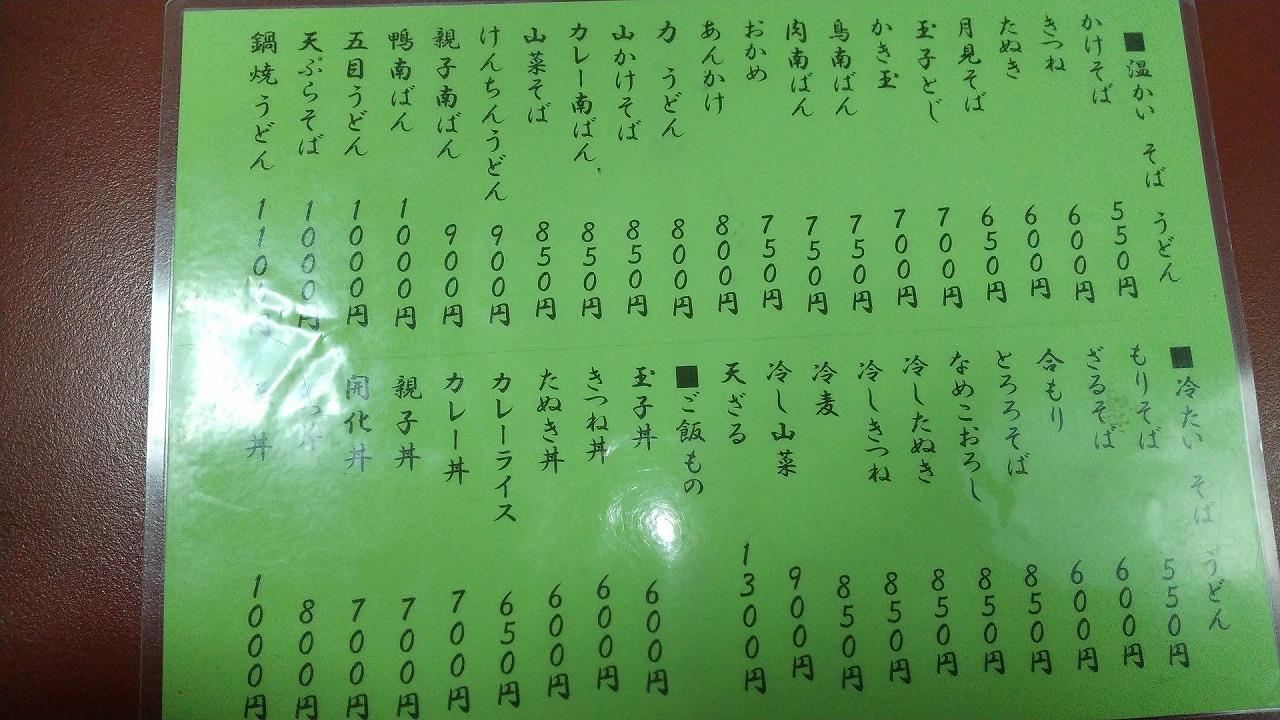 ■温かい そば うどん
かけそば 550円
きつね 600円
たぬき 600円
月見そば 650円
玉子とじ 700円
かき玉 700円
鳥南ばん 750円
肉南ばん 750円
おかめ 750円
あんかけ 800円
力 うどん 800円
山かけそば 850円
カレー南ばん 850円
山菜そば 850円
けんちんうどん 900円
親子南ばん 900円
鴨南ばん 1000円
五目うどん 1000円
天ぷらそば 1000円
鍋焼うどん 円
■冷たい そば うどん
もりそば 550円
ざるそば 600円
合もり 600円
とろろそば 850円
なめこおろし 850円
冷したぬき 850円
冷しきつね 850円
冷麦 850円
冷し山菜 900円
天ざる 1300円
■ご飯もの
玉子丼 600円
きつね丼 600円
たぬき丼 600円
カレーライス 650円
カレー丼 700円
親子丼 700円
開化丼 700円
丼 800円
丼 1000円